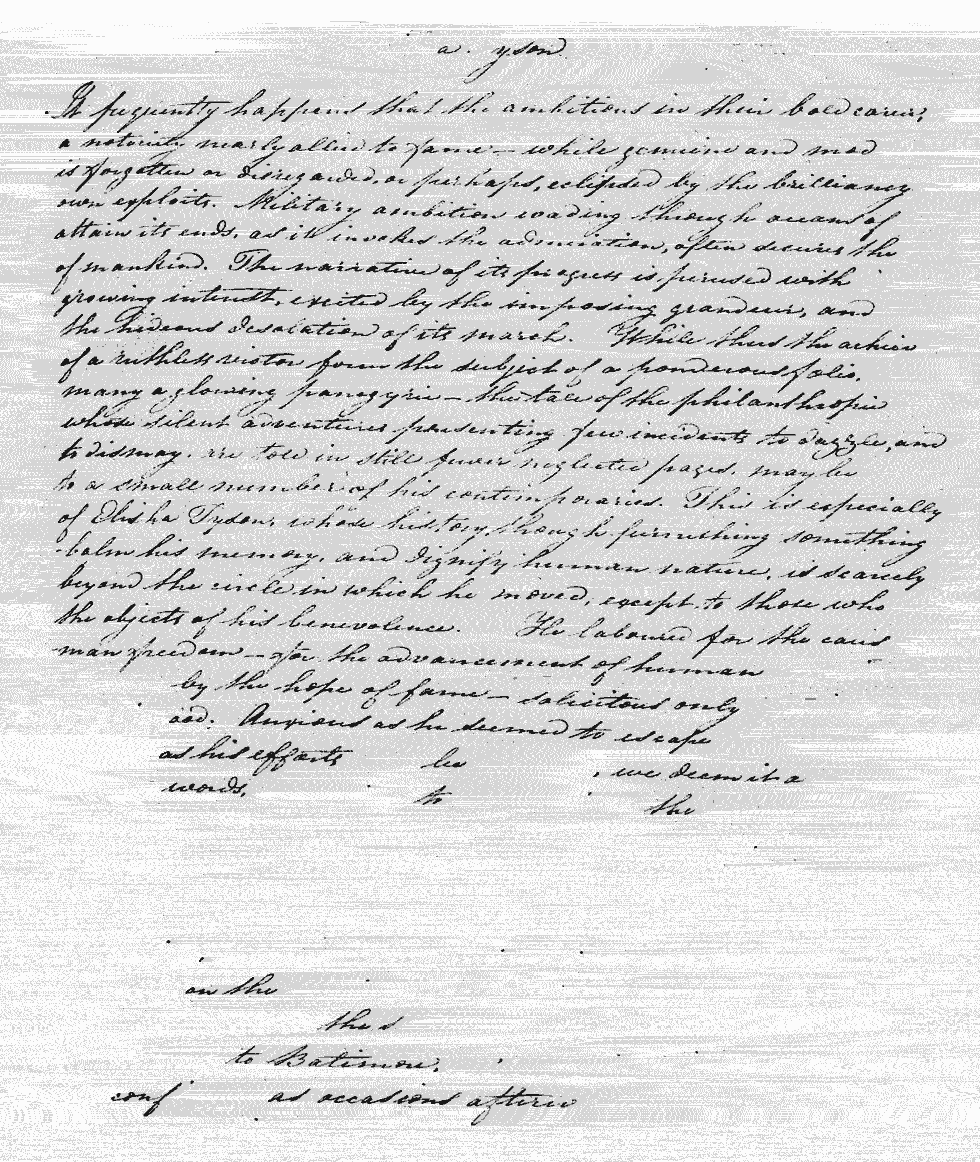 a. yson
It frequently happens that the ambitious in their bold career,
a notoriety nearly allied to fame — while genuine and mod
is forgotten or disregarded, or perhaps, eclipsed by the brilliancy
own exploits. Military ambition wading through oceans of
attain its ends, as it invokes the admiration, often secures the
of mankind. The narrative of its progress is perused with
growing interest, excited by the imposing grandeur, and
the hideous desolation of its march. While thus the achiev
of a ruthless victor form the subject of a ponderous folio,
many a glowing panegyric — the tale of the philanthropic
whose silent adventures presenting few incidents to dazzle, and
to dismay, are told in still fewer neglected pages, may be
to a small number of his contemporaries. This is especially
of Elisha Tyson: whose history, though furnishing something
-balm his memory, and dignify human nature, is scarcely
beyond the circle in which he moved, except to those who
the objects of his benevolence. He laboured for the caus
man freedom — for the advancement of human
by the hope of fame — solicitous only
ood. Anxious as he seemed to escape
as his efforts be , we deem it a
words, to the
on the
the s
to Batimore,
conf as occasions afterw